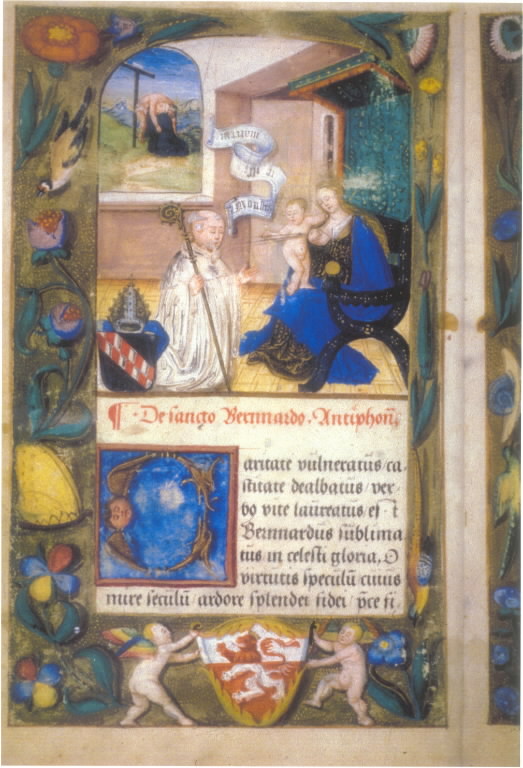 ¶ · De sancto Bernnardo · Antiphona
Caritate vulneratus ca
stitate dealbatus / ver
bo vite laureatus est
Bernnardus sublima
tus in celesti gloria, O
virtutis speculū cuius
mire seculū / ardore splendet fidei / p̄ce si